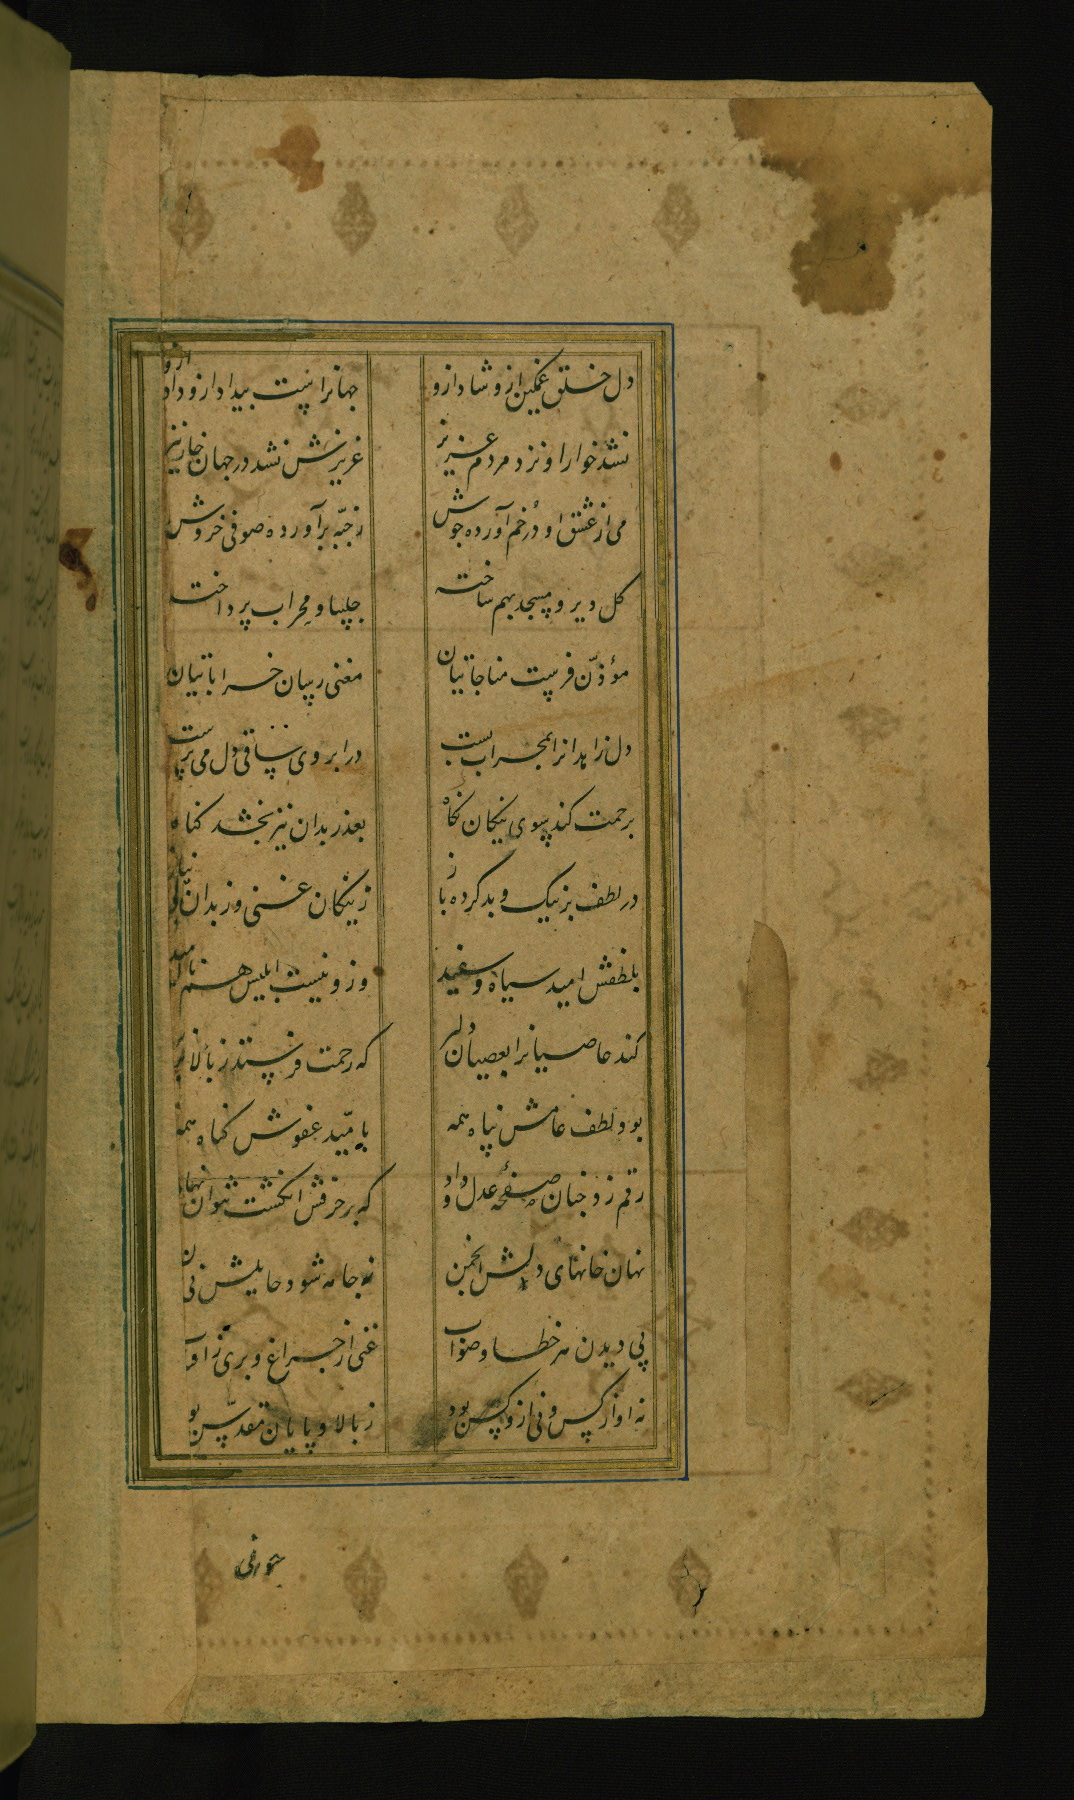 دل خلق غمگین ازو شاد ازو جهانرا پست بیداد ازو داد ازو
نشد خوار او نزد مردم عزیز عزیزش نشد در جهان خار نیز
می از عشق او در خم آورده جوش ز جبّه برآورده صوفی خروش
گل دیر و مسجد بهم ساخته چلیپا و محراب پرداخته
مؤذّن فرست مناجاتیان مغنی رسان خراباتیان
دل زاهدانرا بمحراب بست در ابروی ساقی دل می پرست
برحمت کند سوی نیکان نگاه بعذر بدان نیز بخشد کناه
در لطف بر نیک و بد کرده باز ز نیکان غنی وز بدان بی نیاز
بلطفش امید سیاه و سفید وزو نیست ابلیس هم نا امید
کند عاصیانرا بعصیان دلیر که رحمت فرستد ز بالا بزیر
بود لطف عامش پناه همه بامّید عفوش کناه همه
رقم زد چنان صفحهٔ عدل و داد که بر حرفش انگشت نتوان نهاد
نهان خانهای دلش انجمن نه جامه شود حایلش نی
پی دیدن هر خطا و صواب غنی از چراغ و بری ز
نه او از کس و نی ازو کس بود ز بالا و پایان مقدّس بود
چو رفی